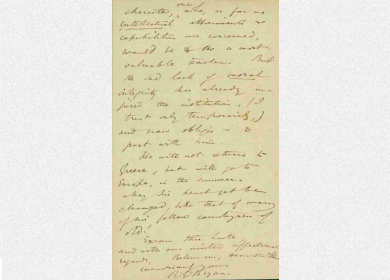 character, one who, so far as
intellectual attainments &
capabilities are concerned,
would be to us a most
valuable teacher. But
the sad lack of moral
integrity has already in-
jured the institution, (I
trust only temporarily,)
and now obliges us to
part with him.
He will not return to
Greece, but will go to
Europe, in the summer.
May his heart yet be
changed, like that of many
of his fellow countrymen of
old!
Excuse this haste
and with our united affectionate
regards, Believe me, dear
very sincerely yours